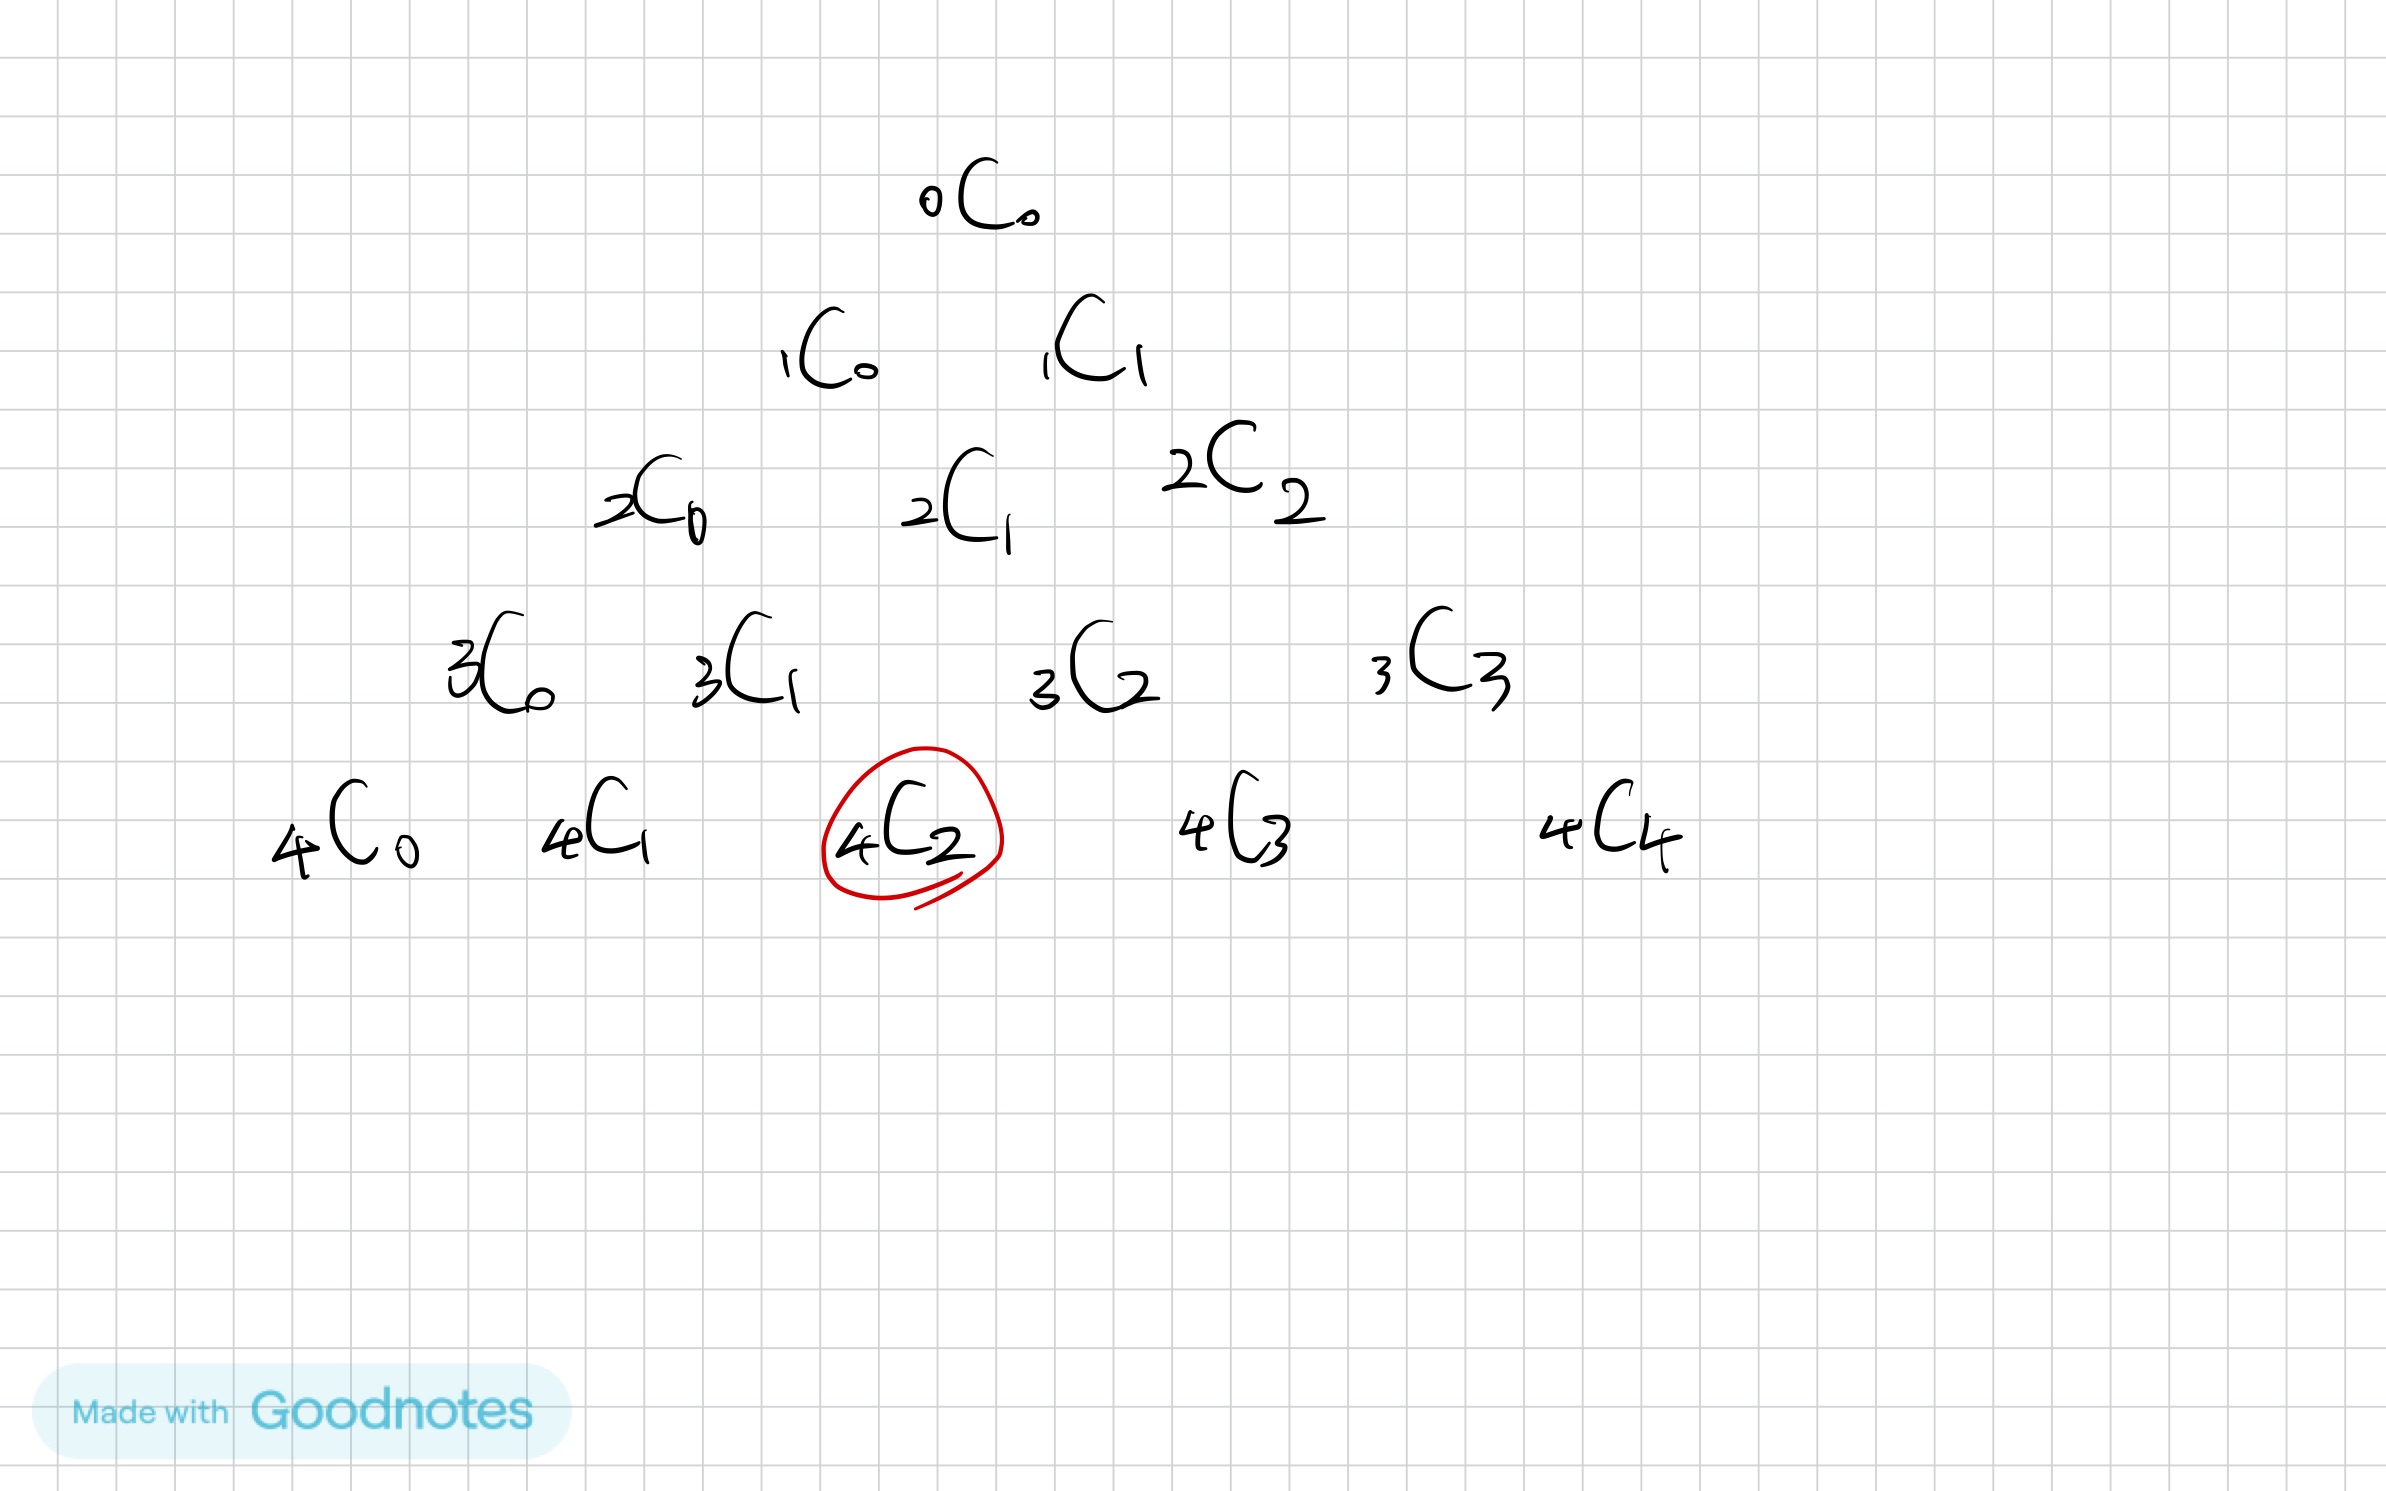 ₀C₀
₁C₀ ₁C₁
₂C₀ ₂C₁ ₂C₂
₃C₀ ₃C₁ ₃C₂ ₃C₃
₄C₀ ₄C₁ ₄C₂ ₄C₃ ₄C₄
Made with Goodnotes